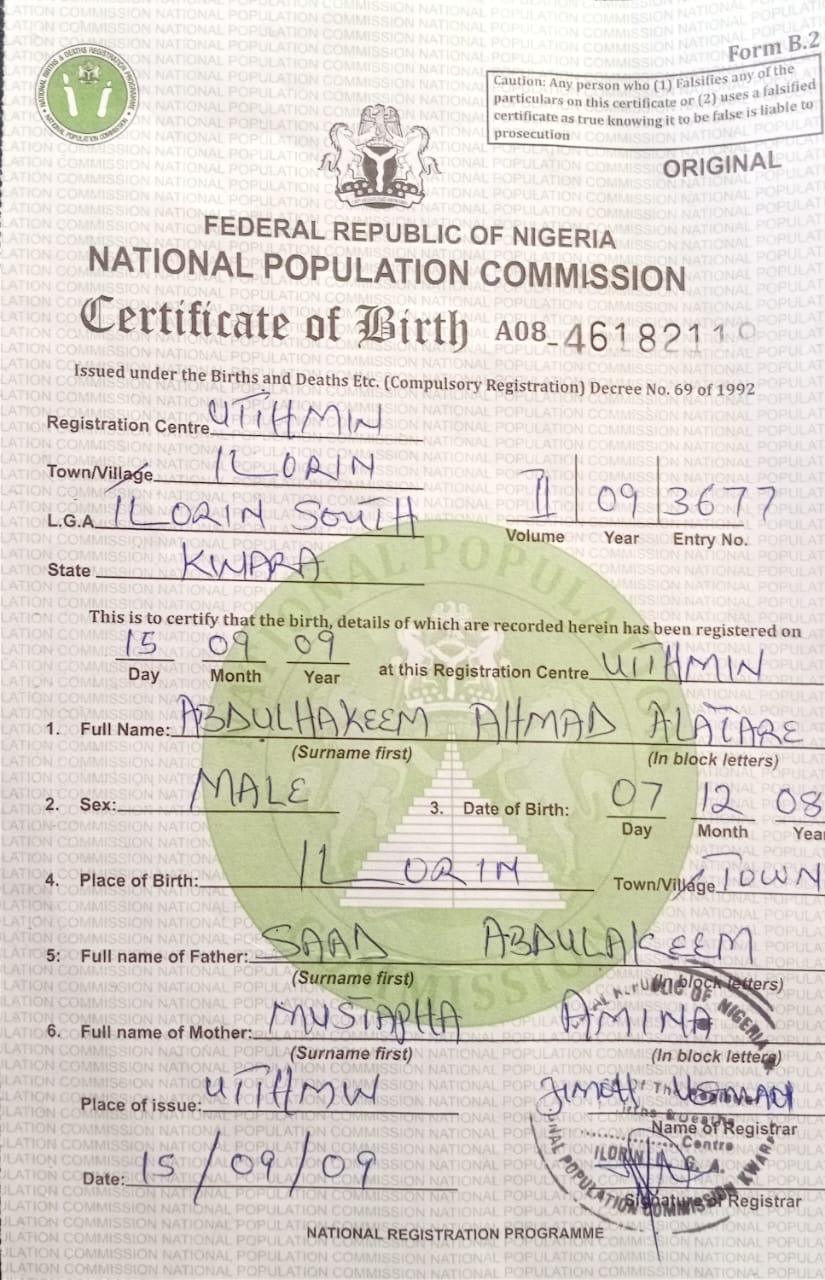 Form B.2
Caution: Any person who (1) Falsifies any of the
particulars on this certificate or (2) uses a falsified
certificate as true knowing it to be false is liable to
prosecution
NATIONAL BIRTHS & DEATHS REGISTRATION PROGRAMME
NATIONAL POPULATION COMMISSION
ORIGINAL
FEDERAL REPUBLIC OF NIGERIA
NATIONAL POPULATION COMMISSION
Certificate of Birth A08_46182119
Issued under the Births and Deaths Etc. (Compulsory Registration) Decree No. 69 of 1992
Registration Centre UTIHMIN
Town/Village ILORIN
L.G.A ILORIN SOUTH
State KWARA
II 09 3677
Volume Year Entry No.
This is to certify that the birth, details of which are recorded herein has been registered on
15 09 09 at this Registration Centre UTIHMIN
Day Month Year
1. Full Name: ABDULHAKEEM AHMAD ALATARE
(Surname first) (In block letters)
2. Sex: MALE 3. Date of Birth: 07 12 08
Day Month Year
4. Place of Birth: ILORIN Town/Village TOWN
5: Full name of Father: SAAD ABDULAKEEM
(Surname first) (In block letters)
6. Full name of Mother: MUSTAPHA AMINA
(Surname first) (In block letters)
Place of issue: UTIHMIN JIMOH USMAN
Name of Registrar
Date: 15/09/09
Signature of Registrar
NATIONAL REGISTRATION PROGRAMME